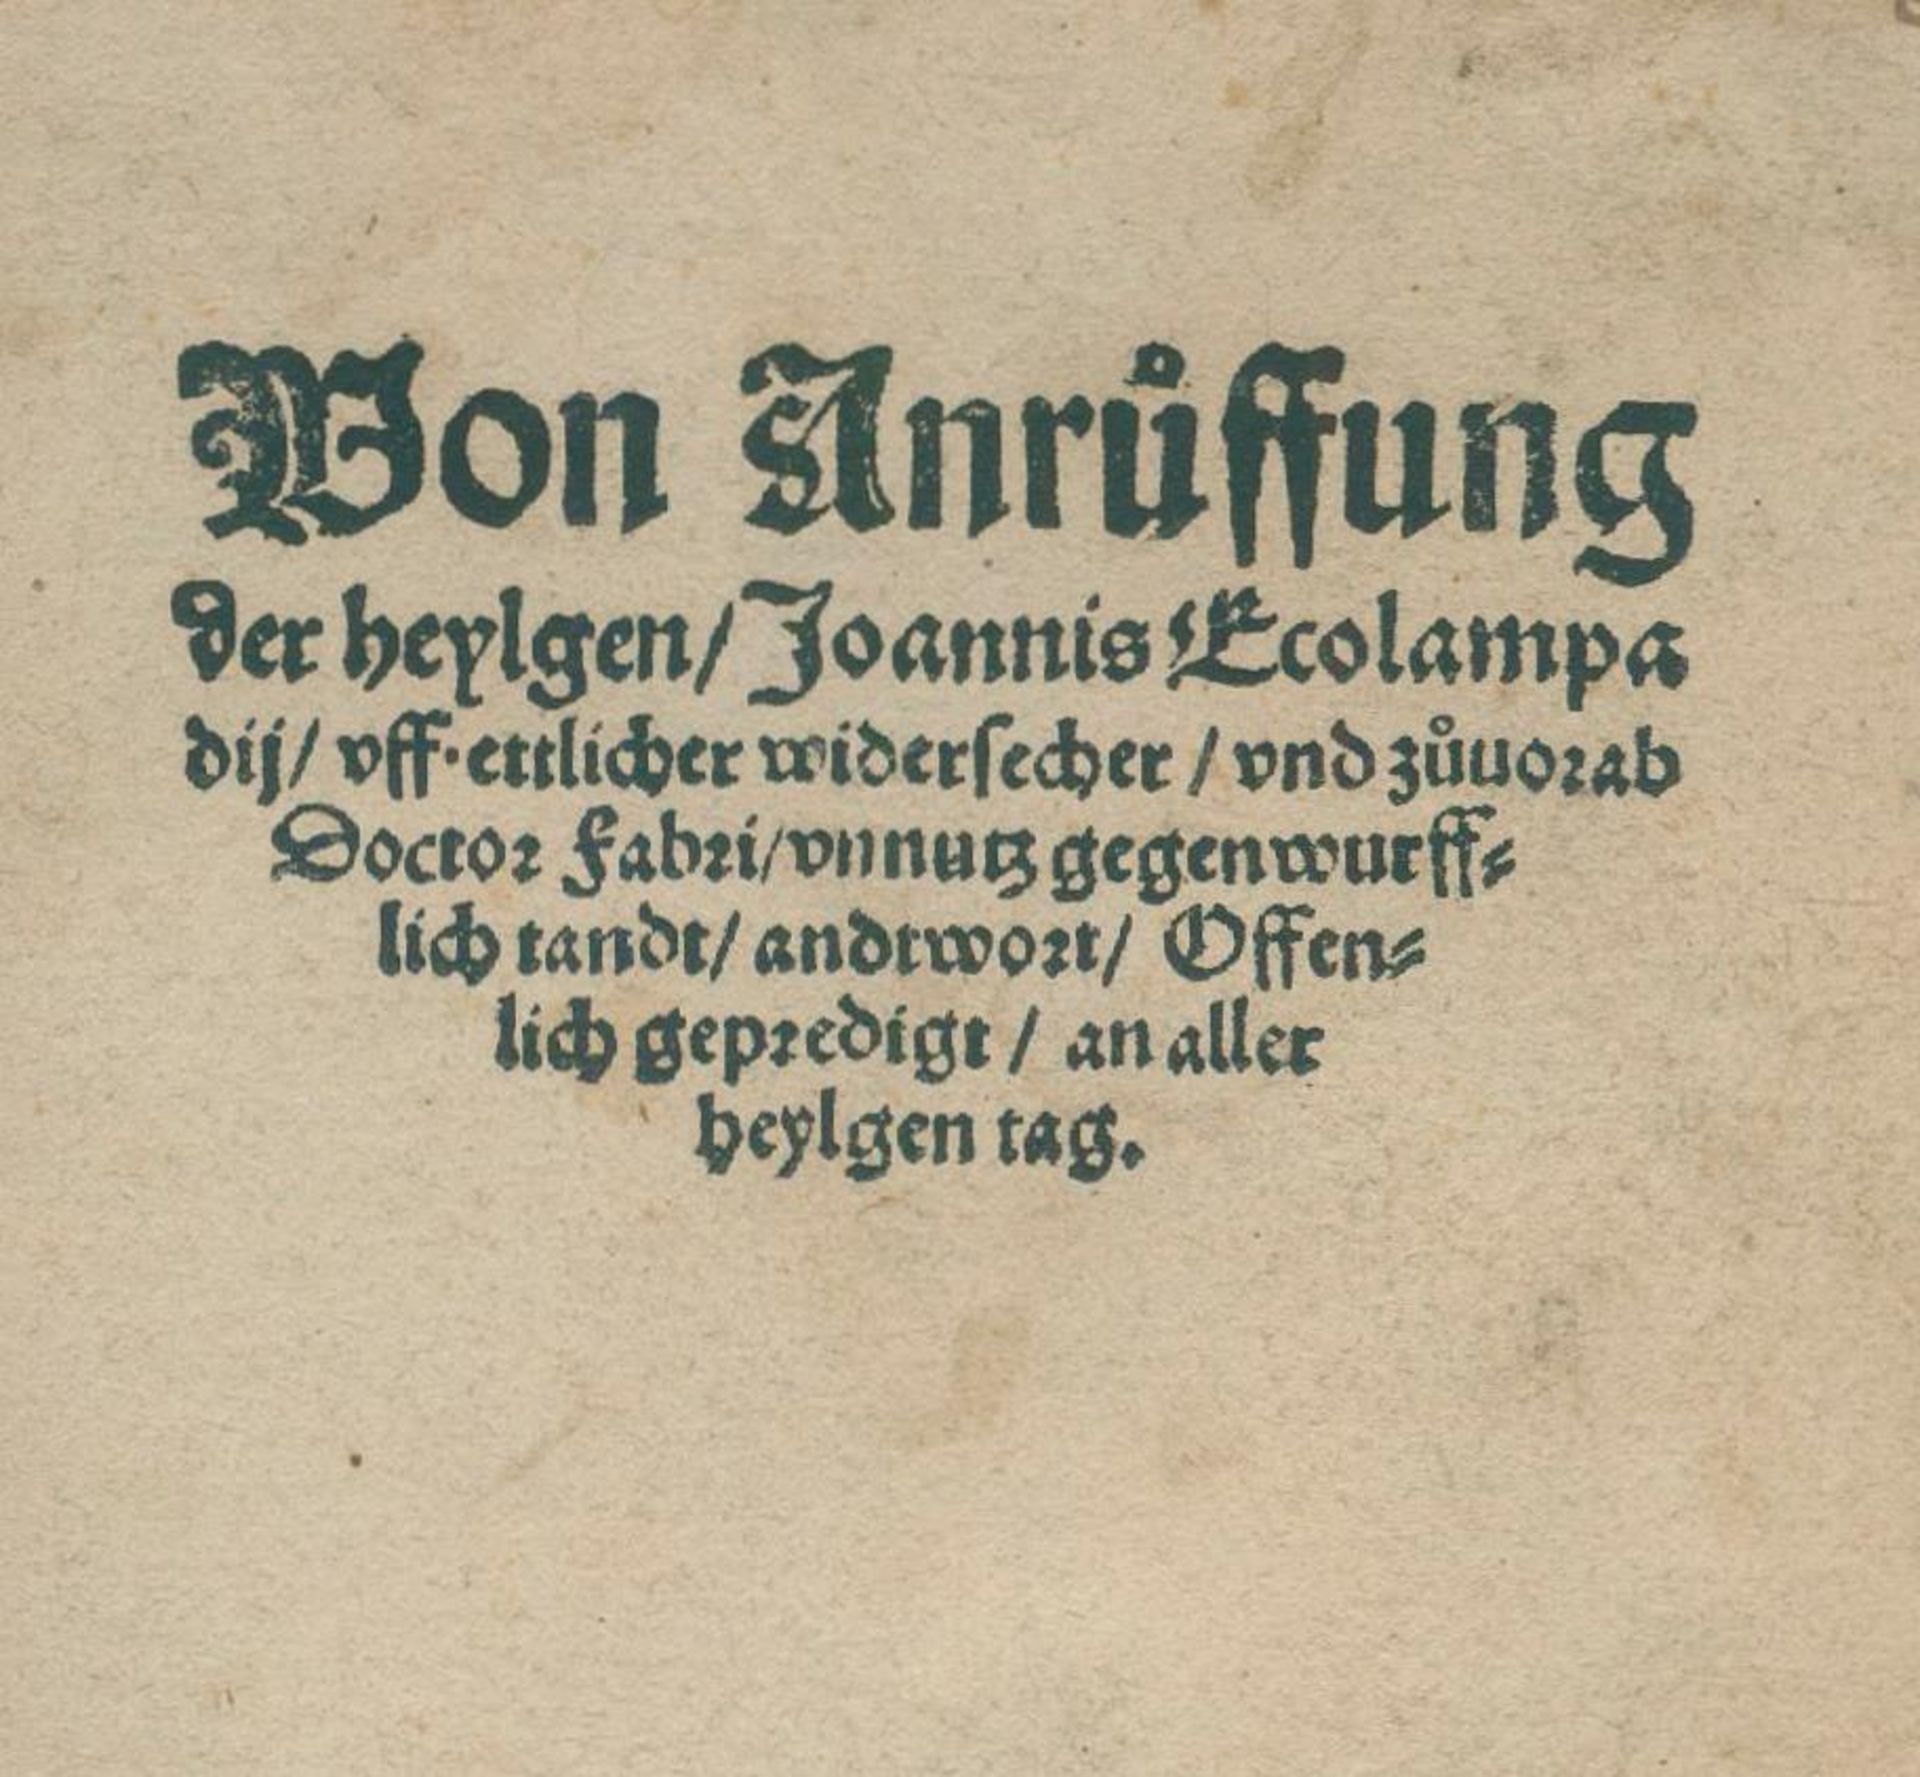 Von Anrůffung
der heylgen/ Joannis Ecolampa
dij/ vff ettlicher widersecher / vnd zůuorab
Doctor Fabri/ vnnutz gegenwurff⸗
lich tandt/ andtwort/ Offen⸗
lich gepredigt / an aller
heylgen tag.